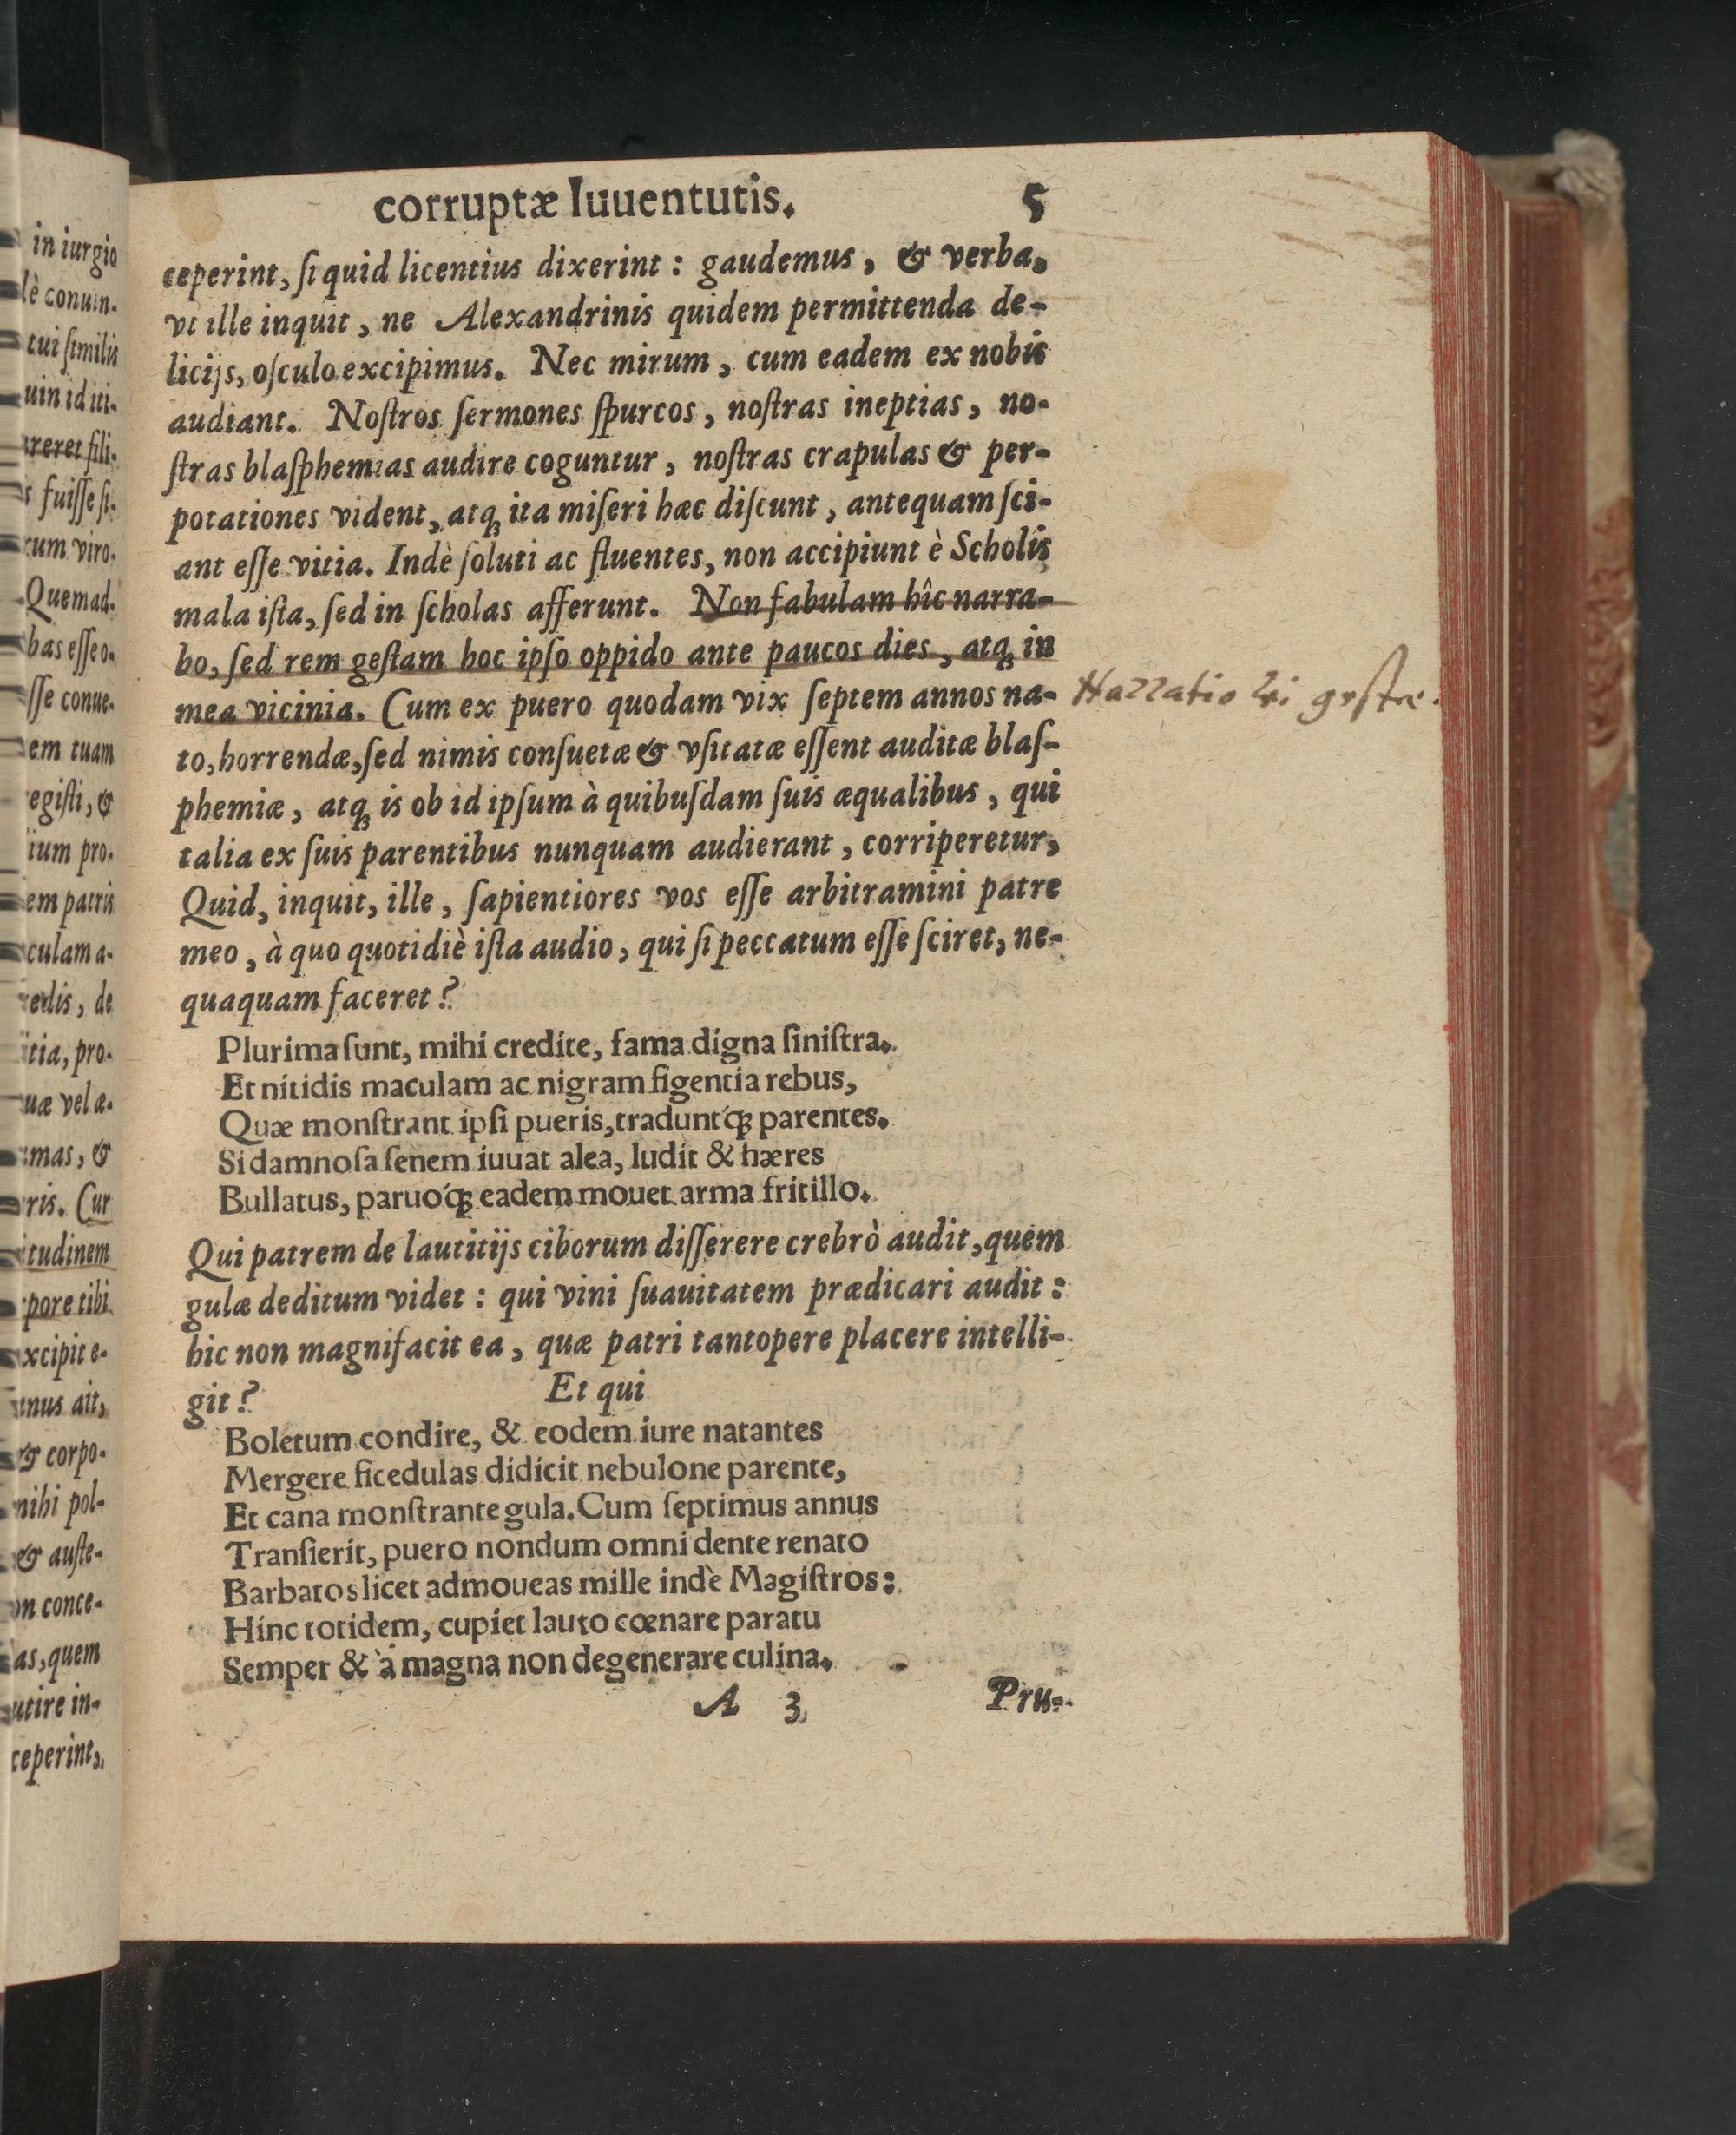 corruptæ Iuuentutis. 5
ceperint, ſi quid licentius dixerint : gaudemus, & verba,
vt ille inquit, ne Alexandrinis quidem permittenda de-
licijs, oſculo excipimus. Nec mirum, cum eadem ex nobis
audiant. Noſtros ſermones ſpurcos, noſtras ineptias, no-
ſtras blaſphemias audire coguntur, noſtras crapulas & per-
potationes vident, atq́ ita miſeri hæc diſcunt, antequam ſci-
ant eſſe vitia. Indè ſoluti ac fluentes, non accipiunt è Scholis
mala iſta, ſed in ſcholas afferunt. Non fabulam hîc narra-
bo, ſed rem geſtam hoc ipſo oppido ante paucos dies, atq́ in
mea vicinia. Cum ex puero quodam vix ſeptem annos na-
Narratio rei geſtæ.
to, horrendæ, ſed nimis conſuetæ & vſitatæ eſſent auditæ blaſ-
phemiæ, atq́ is ob id ipſum à quibuſdam ſuis æqualibus, qui
talia ex ſuis parentibus nunquam audierant, corriperetur,
Quid, inquit, ille, ſapientiores vos eſſe arbitramini patre
meo, à quo quotidiè iſta audio, qui ſi peccatum eſſe ſciret, ne-
quaquam faceret?
Plurima ſunt, mihi credite, fama digna ſiniſtra.
Et nitidis maculam ac nigram figentia rebus,
Quæ monſtrant ipſi pueris, traduntq́; parentes.
Si damnoſa ſenem iuuat alea, ludit & hæres
Bullatus, paruoq́; eadem mouet arma fritillo.
Qui patrem de lautitijs ciborum diſſerere crebrò audit, quem
gulæ deditum videt : qui vini ſuauitatem prædicari audit :
hic non magnifacit ea, quæ patri tantopere placere intelli-
git? Et qui
Boletum condire, & eodem iure natantes
Mergere ficedulas didicit nebulone parente,
Et cana monſtrante gula. Cum ſeptimus annus
Tranſierit, puero nondum omni dente renato
Barbatos licet admoueas mille indè Magiſtros:
Hinc totidem, cupiet lauto cœnare paratu
Semper & à magna non degenerare culina.
A 3 Pru-